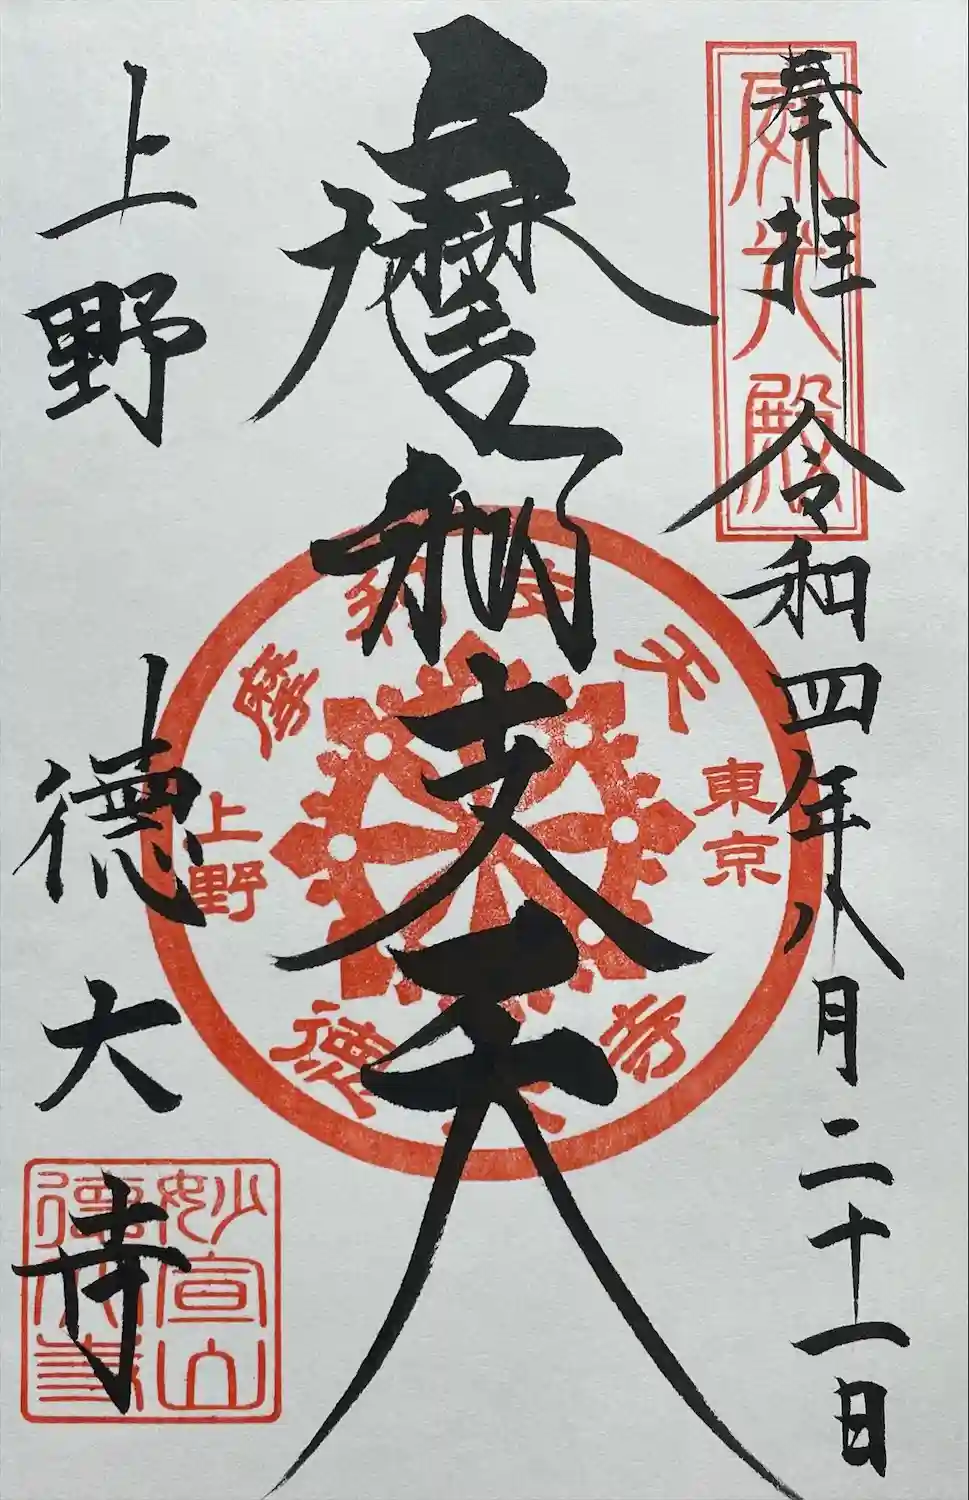 奉拝 令和四年八月二十一日
威光殿
摩利支天
上野 徳大寺
摩利支天
東京
上野
徳大寺
妙宣山
徳大寺